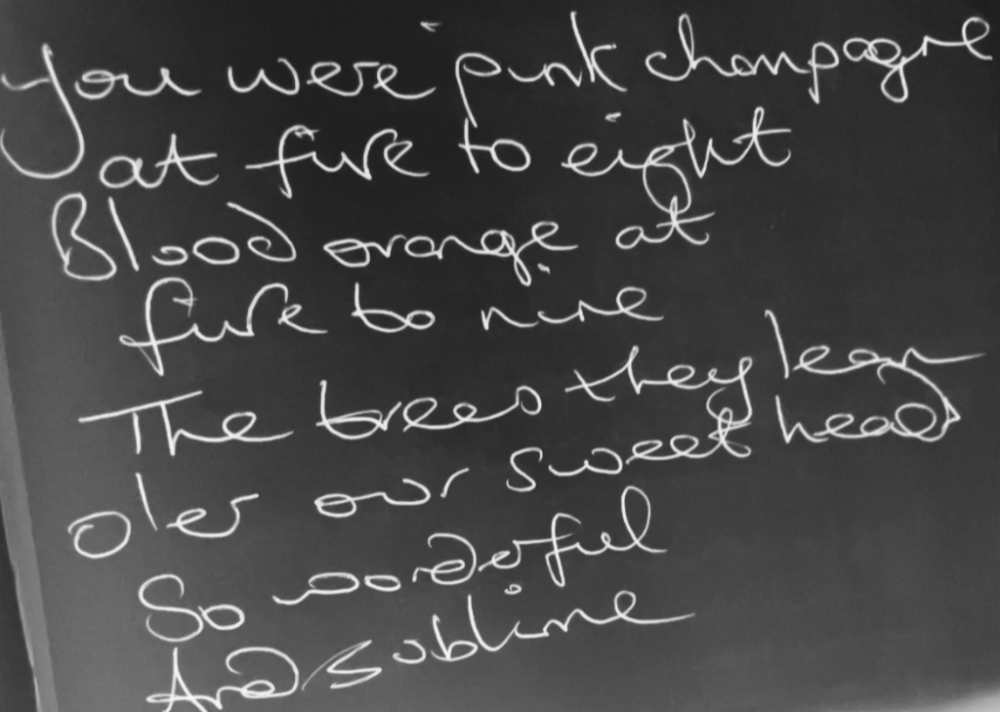 You were pink champagne
at five to eight
Blood orange at
five to nine
The trees they lean
o'er our sweet head
So wonderful
And sublime